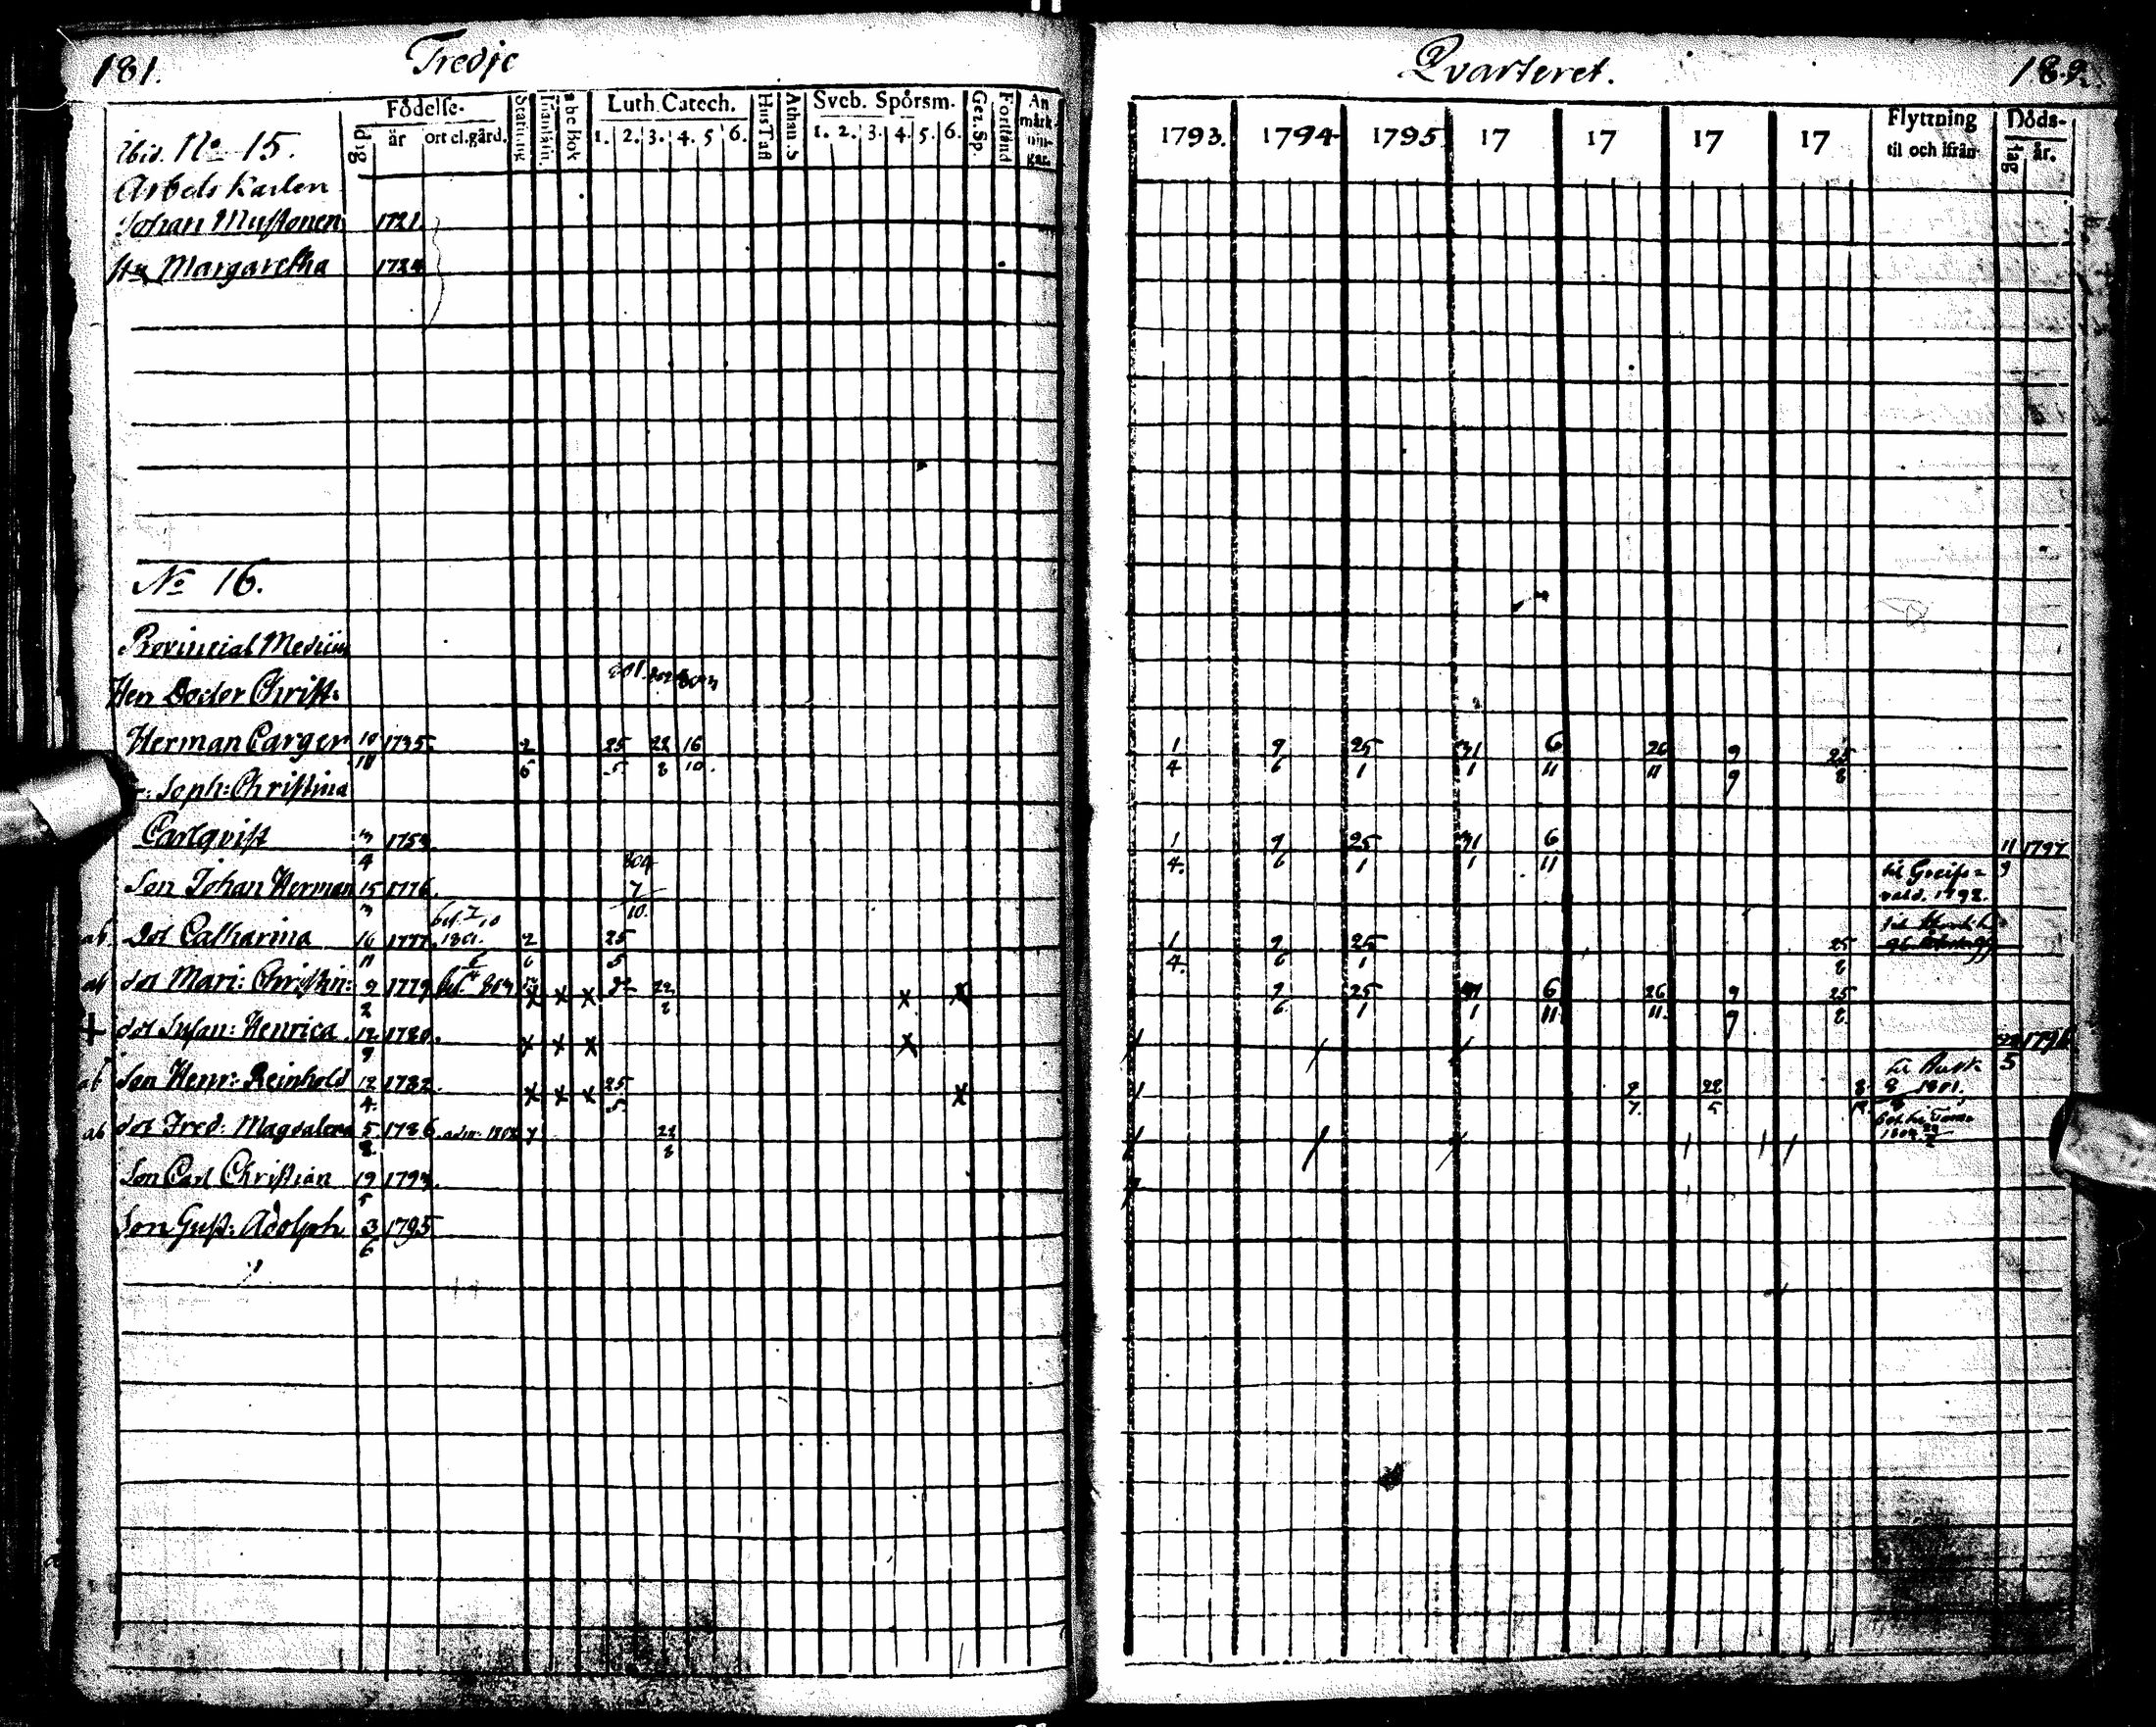 181. Tredje
Qvarteret. 182.
Födelse- Luth. Catech. Hus Tafl Athan. S Sveb. Spörsm. Gez. Sp. Förstånd An märk-nin-gar.
dag år ort el. gård. abc Bok 1. 2. 3. 4. 5 6. 1. 2. 3. 4. 5. 6.
1793. 1794 1795 17 17 17 17 Flyttning til och ifrån Döds- dag år.
ibid. No 15.
Arbets Karlen
Johan Mustonen 1721.
Margaretha 1724
No 16.
Provincial Medicus
Herr Doctor Christ:
801. 802 803
Herman Carger 10/11 1735. 2/6 25/5 22/8 16/10. 1/4 9/6 25/1 31/1 6/11 26/11 9/9 25/8
Soph: Christina
Carlqvist 3/4 1753. 1/4. 9/6 25/1 31/1 6/11 11/9 1797
804 7/10.
Son Johan Herman 15/3 1776. til Greifs=
vald. 1792.
ab Dot Catharina 16/11 1777. 1801. 2/6 25/5 1/4. 9/6 25/1 25/8
ab dot Mari: Christin: 9/2 1779 x x x 22/8 x x 9/6 25/1 31/1 6/11. 26/11. 9/9 25/8
+ dot Susan: Henrica 12/9 1780. x x x x 5 1796
ab Son Henr: Reinhold 12/4. 1782. x x x 25/5 x 9/7. 22/5 1801.
ab dot Fred: Magdalena 5/8. 1786. adm. 1802 22/8
Son Carl Christian 19/5 1793.
Son Gust: Adolph 3/6 1795